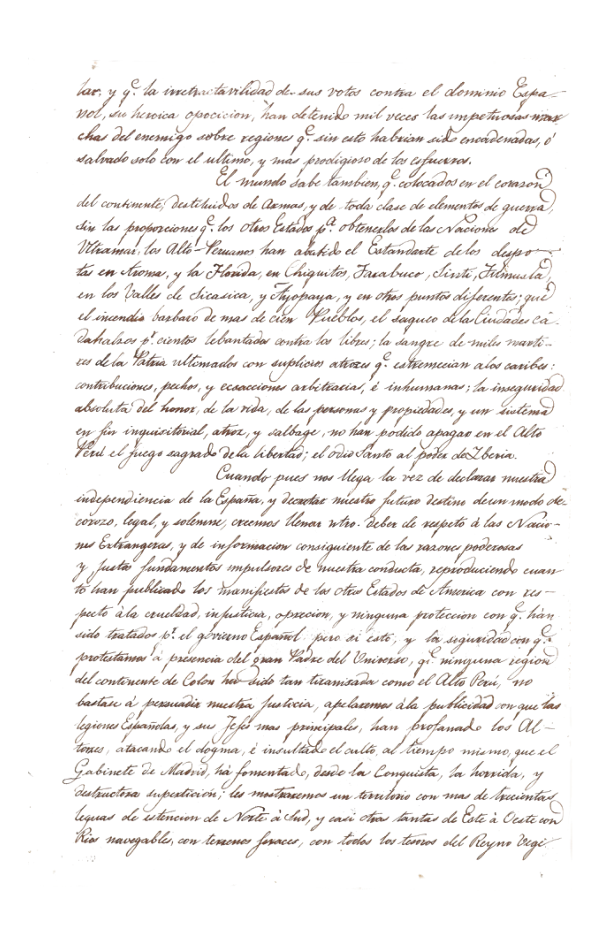 lar, y q.e la irretractavilidad de sus votos contra el dominio Espa-
ñol, su heroica oposicion, han detenido mil veces las impetuosas mar
chas del enemigo sobre regiones q.e sin esto habrian sido encadenadas, ó
salvado solo con el ultimo, y mas prodigioso de los esfuerzos.
El mundo sabe tambien, q.e colocados en el corazon
del continente, destituidos de Armas, y de toda clase de elementos de guerra,
sin las proporciones q.e los otros Estados p.a obtenerlos de las Naciones de
Ultramar, los Alto-Peruanos han abatido el Estandarte de los despo-
tas en Aroma, y la Florida, en Chiquitos, Tarabuco, Cinti,
en los Valles de Sicasica, y Ayopaya, y en otros puntos diferentes; que
el incendio barbaro de mas de cien Pueblos, el saqueo de las Ciudades ca
dahalzos p.r cientos lebantados contra los libres; la sangre de miles marti-
res de la Patria ultimados con suplicios atroces q.e estremecian a los caribes:
contribuciones, pechos, y ecsacciones arbitrarias, é inhumanas; la inseguridad
absoluta del honor, de la vida, de las personas y propiedades, y un sistema
en fin inquisitorial, atroz, y salbage, no han podido apagar en el Alto
Perú el fuego sagrado de la libertad; el odio Santo al poder de Iberia.
Cuando pues nos llega la vez de declarar nuestra
independiencia de la España, y decretar nuestro futuro destino de un modo de-
corozo, legal, y solemne, creemos llenar ntro. deber de respeto á las Nacio-
nes Extrangeras, y de informacion consiguiente de las razones poderosas
y justos fundamentos impulsores de nuestra conducta, reproduciendo cuan
to han publicado los manifiestos de los otros Estados de America con res-
pecto á la crueldad, injusticia, oprecion, y ninguna proteccion con q.e han
sido tratados p.r el govierno Español: pero si esto, y la seguridad con q.e
protestamos á presencia del gran Padre del Universo, q.e ninguna region
del continente de Colon ha sido tan tiranizada como el Alto Perú, no
bastase á persuadir nuestra justicia, apelaremos á la publicidad con que las
legiones Españolas, y sus Jefes mas principales, han profanado los Al-
tares, atacando el dogma, é insultado el culto, al tiempo mismo, que el
Gabinete de Madrid, há fomentado, desde la Conquista, la horrida, y
destructora supersticion; les mostraremos un territorio con mas de trecientas
leguas de estencion de Norte á Sud, y casi otras tantas de Este á Oeste con
Rios navegables, con terrenos feraces, con todos los tesoros del Reyno Vegi